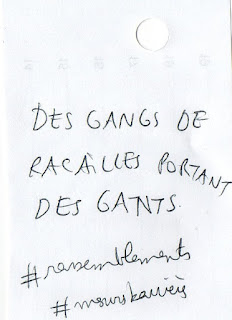 DES GANGS DE
RACAILLES PORTANT
DES GANTS.
#rassemblements